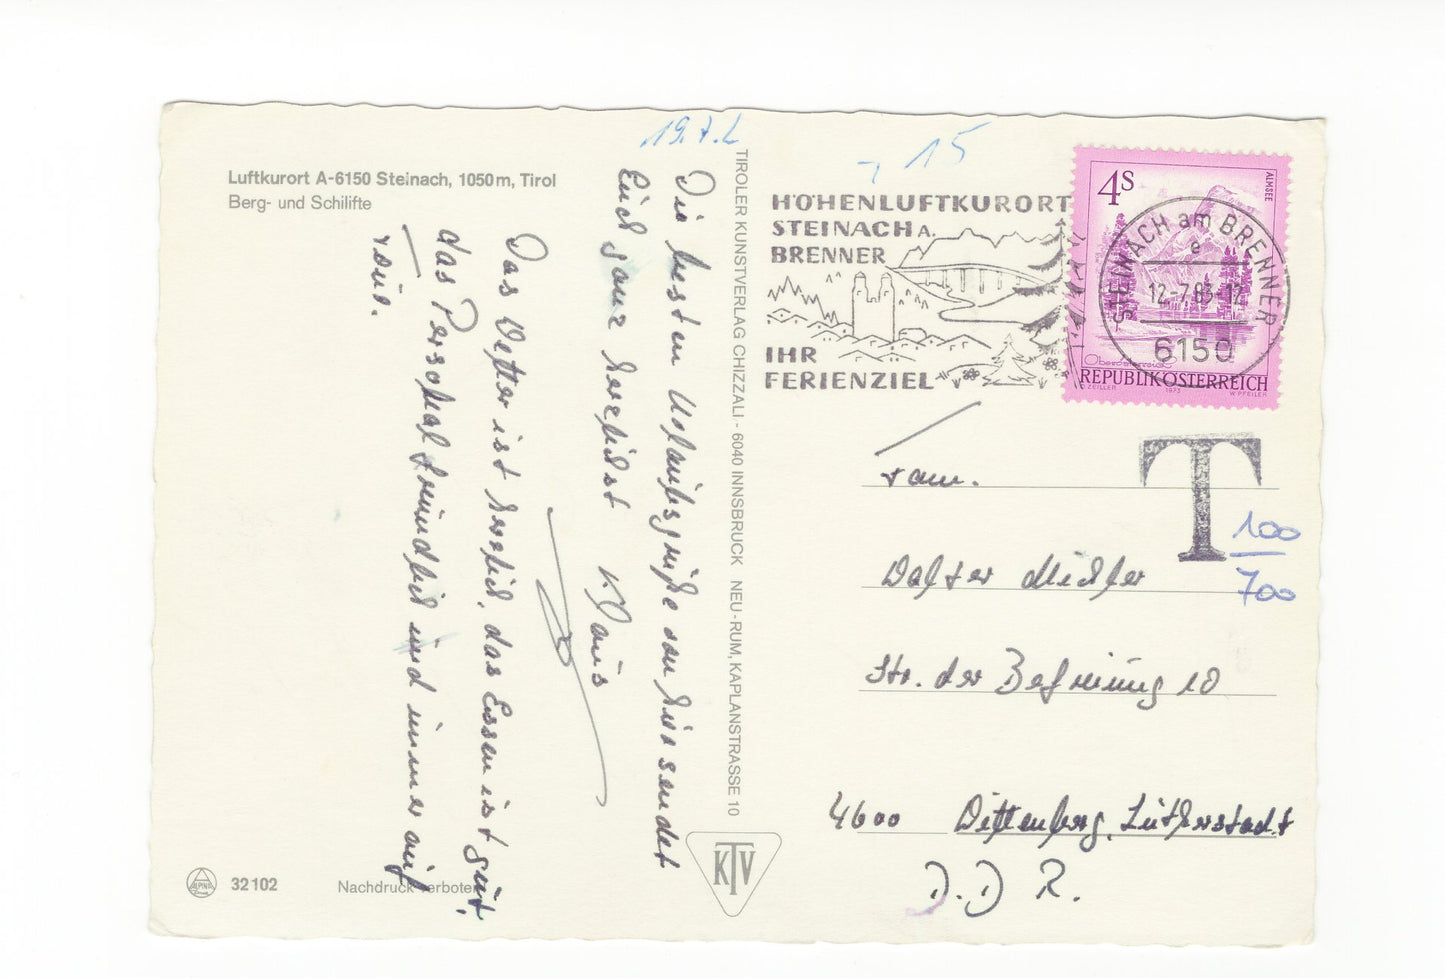 Luftkurort A-6150 Steinach, 1050 m, Tirol
Berg- und Schilifte
19.7.
Die besten Urlaubsgrüße von hier sendet
Euch ganz herzlichst
Das Wetter ist herrlich, das Essen ist gut,
das Personal freundlich und immer auf
raus.
32102
Nachdruck verboten
TIROLER KUNSTVERLAG CHIZZALI - 6040 INNSBRUCK NEU-RUM, KAPLANSTRASSE 10
KTV
15
HÖHENLUFTKURORT
STEINACH A.
BRENNER
IHR
FERIENZIEL
4 S
ALMSEE
Oberösterreich
REPUBLIK ÖSTERREICH
ZEILLER 1973 W. PFEILER
STEINACH am BRENNER
e
12-7.83-12
6150
T
100
700
Fam.
Walter Michler
Str. der Befreiung 10
4600 Wittenberg, Lutherstadt
D.D R.